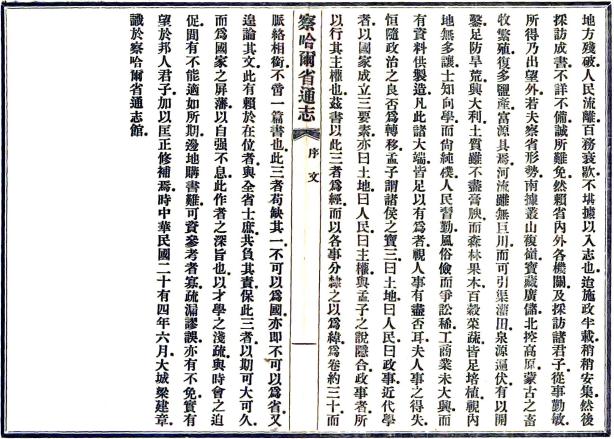 地方殘破.人民流離.百務衰歇.不堪據以入志也.迨施政半載.稍稍安集.然後
採訪成書.不詳不備.誠所難免.然賴省內外各機關及採訪諸君子.從事勤敏.
所得乃出望外.若夫察省形勢.南據叢山複嶺.寶藏廣儲.北控高原.蒙古之畜
牧繁殖.復多鹽產.富源具焉.河流雖無巨川.而可引渠灌田.泉源遍伏.有以開
鑿.足防旱荒.興大利.土質雖不盡膏腴.而森林果木.百穀菜蔬.皆足培植.視內
地無多讓.士知向學.而尙純樸.人民習勤.風俗儉而爭訟稀.工商業未大興.而
有資料供製造.凡此諸大端.皆足以有爲者.視人事有盡否耳.夫人事之得失.
恒隨政治之良否爲轉移.孟子謂諸侯之寶三.曰土地.曰人民.曰政事.近代學
者.以國家成立三要素.亦曰土地.曰人民.曰主權.與孟子之說隱合.政事者.所
以行其主權也.茲書以此三者爲經.而以各事分隸之以爲緯.爲卷約三十.而
察哈爾省通志
序文
一
脈絡相銜.不啻一篇書也.此三者苟缺其一.不可以爲國.亦卽不可以爲省.又
遑論其文.此有賴於在位者.與全省士庶.共負其責.保此三者.以期可大可久.
而爲國家之屏藩.以自强不息.此作者之深旨也.以才學之淺疏.與時會之迫
促.間有不能適如所期.邊地購書難.可資參考者寡.疏漏謬誤.亦有不免.實有
望於邦人君子.加以匡正修補焉.時中華民國二十有四年六月.大城梁建章.
識於察哈爾省通志館.